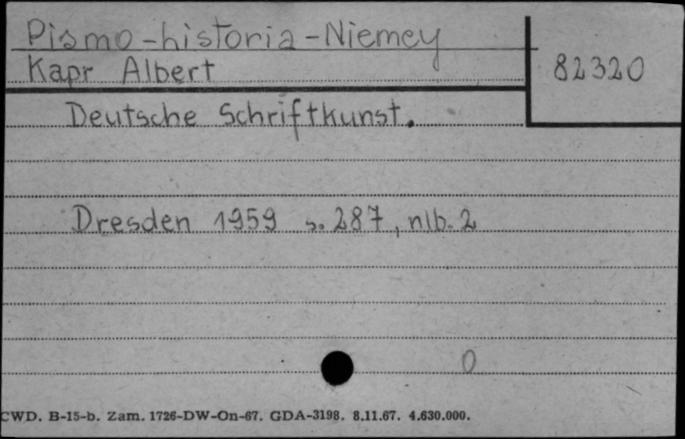 Pismo-historia-Niemcy
Kapr Albert
82320
Deutsche Schriftkunst.
Dresden 1959 s. 287, nlb. 2
0
CWD. B-15-b. Zam. 1726-DW-On-67. GDA-3198. 8.11.67. 4.630.000.